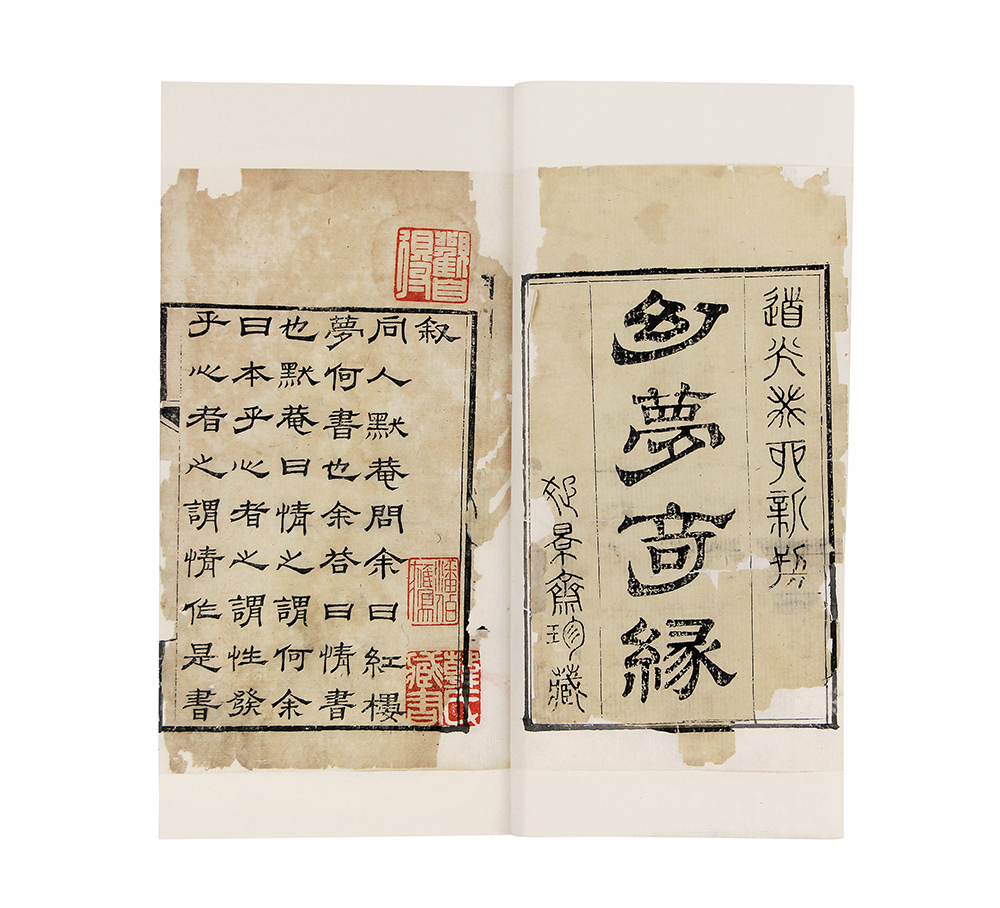 道光癸卯新
幻夢奇緣
疏景齋珍藏
叙
同人默菴問余曰紅樓
夢何書也余答曰情書
也默菴曰情之謂何余
曰本乎心者之謂性發
乎心者之謂情作是書
潘伯鷹
藏書